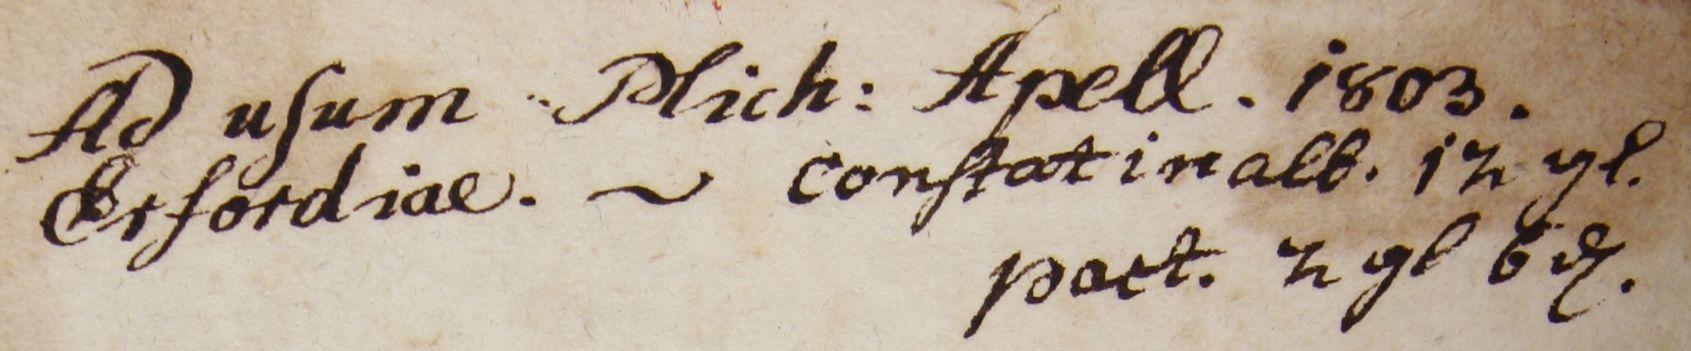 Ad uſum Mich: Apell. 1803.
Erfordiae. ~ conſtat in alb. 12 gl.
pact. 2 gl 6 ₰.